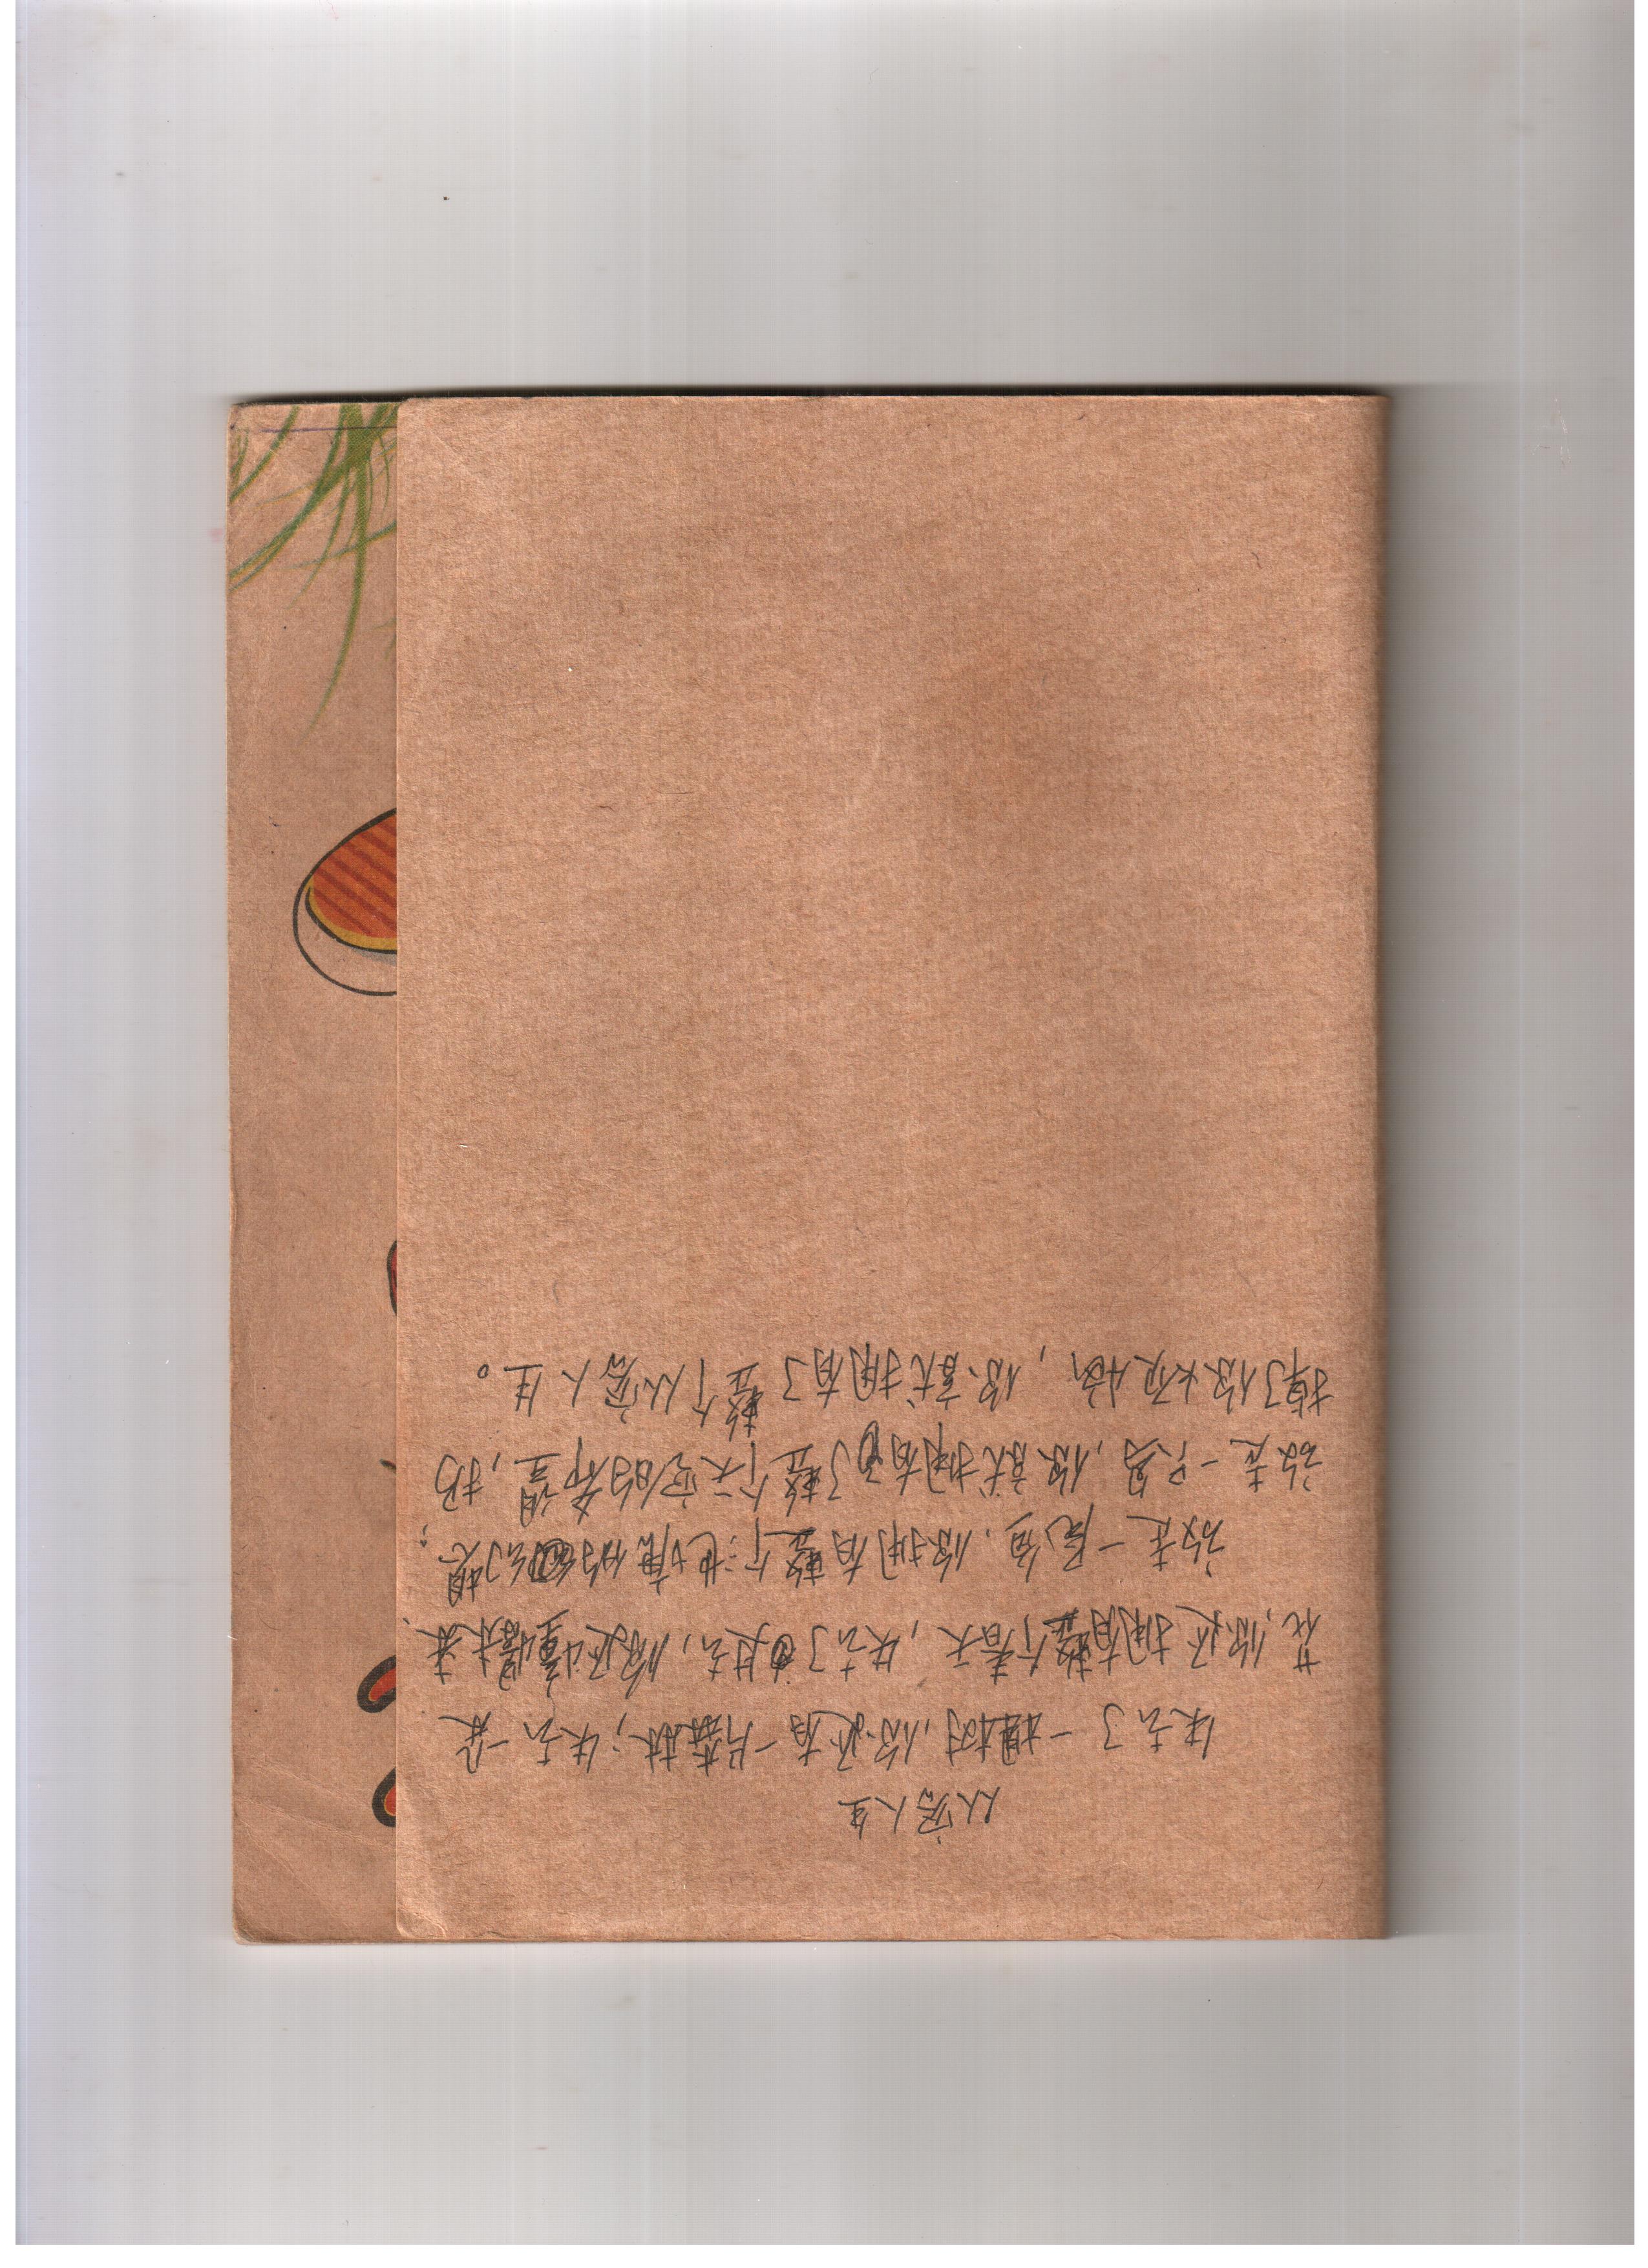 从容人生
失去了一棵树，你还有一片森林；失去一朵
花，你还拥有整个春天，失去了过去，你还憧憬未来、
放走一尾鱼，你拥有整个池塘的幻想；
放走一只鸟，你就拥有了整个天空的希望，扔
掉了你烦恼，你就拥有了整个从容人生。